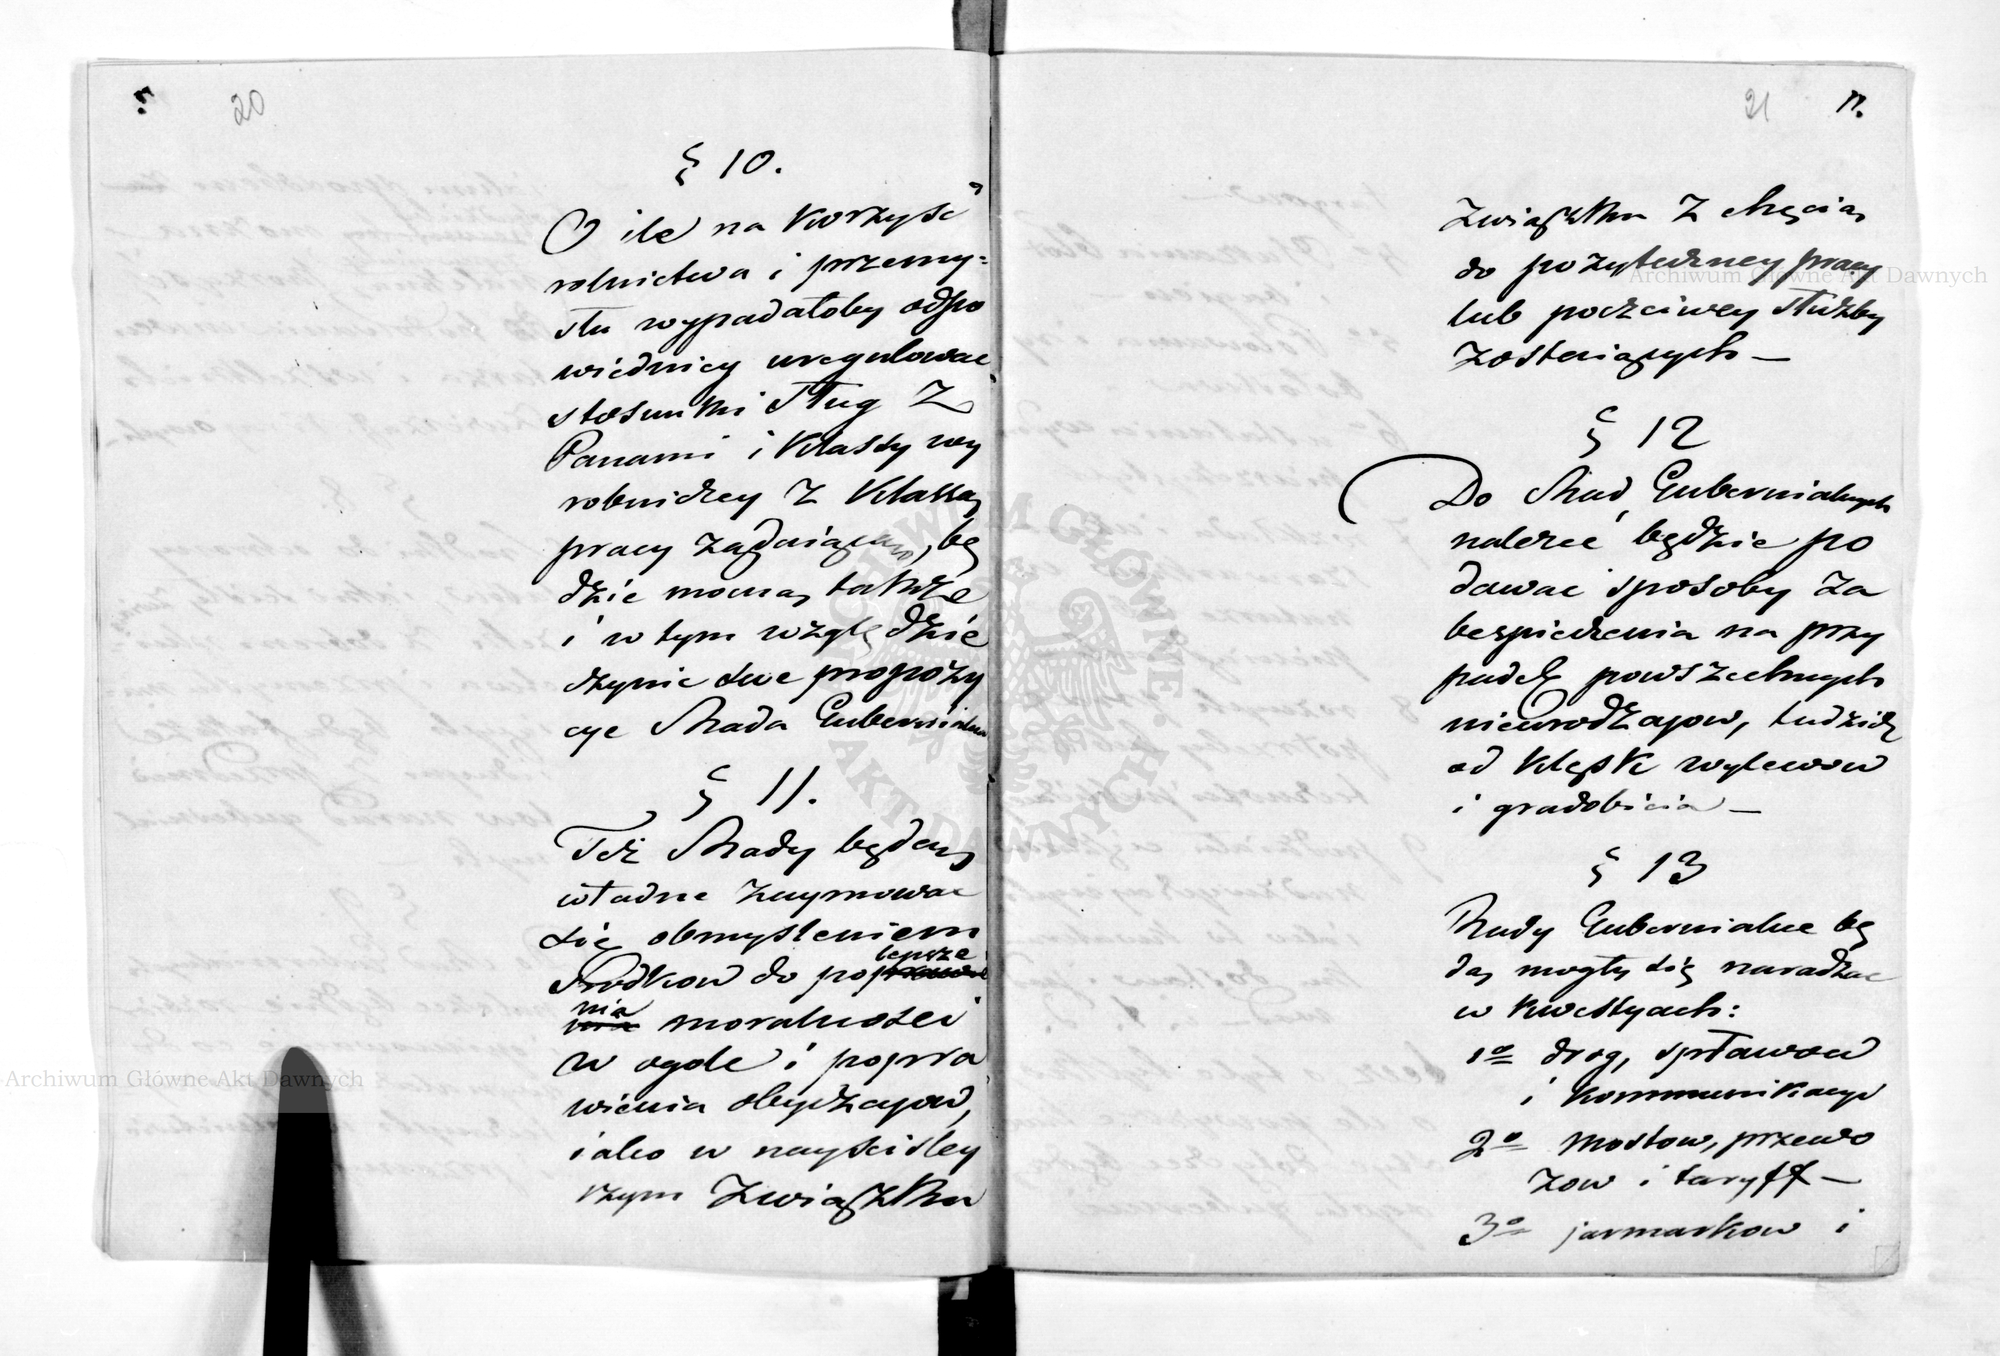 20
§ 10.
O ile na korzyść
rolnictwa i przemy=
słu wypadałoby odpo
wiedniey uregulować
stosunki sług z
Panami i klassy wy
robniczey z klassą
pracy żądaiącą, bę
dzie mocną także
i w tym względzie
czynić swe propozy
cye Rada Gubernialna
§ 11.
Też Rady będą
władne zaymować
się obmysleniem
srodkow do polepsze
nia moralnosci
w ogole i popra
wienia obyczayow,
iako w nayscisley
szym związku
21
11.
związku z chęcią
do pożyteczney pracy
lub poczciwey służby
zostaiących —
§ 12
Do Rad Gubernialnych
należeć będzie po
dawać sposoby za
bespieczenia na przy
padek powszechnych
nieurodzajow, tudzież
od klęsk wylewow
i gradobicia —
§ 13
Rady Gubernialne bę
dą mogły się naradzać
w kwestyach:
1o drog, spławow
i kommunikacyi
2o mostow, przewo
zow i taryff —
3o jarmarkow i
Archiwum Główne Akt Dawnych
Archiwum Główne Akt Dawnych
ARCHIWUM GŁÓWNE AKT DAWNYCH